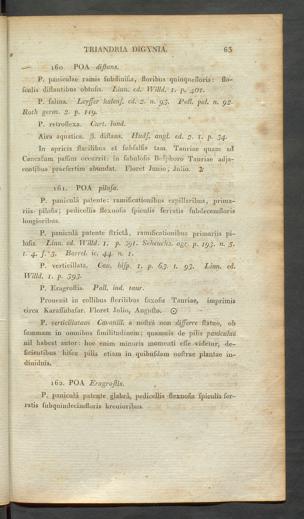 TRIANDRIA DIGYNIA. 63
160. POA distans.
P. paniculae ramis subdivisis, floribus quinquefloris: flo-
sculis distantibus obtusis. Linn. ed. Willd. 1. p. 401.
P. salina. Leysser halens. ed. 2. n. 93. Pall. pal. n. 92.
Roth germ. 2. p. 119.
P. retroflexa. Curt. lond.
Aira aquatica. β. distans. Huds. angl. ed. 2. 1. p. 34.
In apricis sterilibus et subsalsis tam Tauriae quam ad
Caucasum passim occurrit: in sabulosis Bosphoro Tauriae adja-
centibus praesertim abundat. Floret Junio, Julio. ♃
161. POA pilosa.
P. paniculâ patente: ramificationibus capillaribus, prima-
riis pilosis; pedicellis flexuosis spiculis serratis subdecemfloris
longioribus.
P. paniculâ patente strictâ, ramificationibus primariis pi-
losis. Linn. ed. Willd. 1. p. 391. Scheuchz. agr. p. 193. n. 3.
t. 4. f. 3. Barrel. ic. 44. n. 1.
P. verticillata. Cav. hisp. 1. p. 63. t. 93. Linn. ed.
Willd. 1. p. 393.
P. Eragrostis. Pall. ind. taur.
Provenit in collibus sterilibus saxosis Tauriae, imprimis
circa Karassubasar. Floret Julio, Augusto. ☉
P. verticillatam Cavanill. a nostra non differre statuo, ob
summam in omnibus similitudinem; quamvis de pilis paniculae
nil habeat autor: hoc enim minoris momenti esse videtur, de-
ficientibus hisce pilis etiam in quibusdam nostrae plantae in-
dividuis.
162. POA Eragrostis.
P. paniculâ patente glabrâ, pedicellis flexuosis spiculis ser-
ratis subquindecimfloris brevioribus.